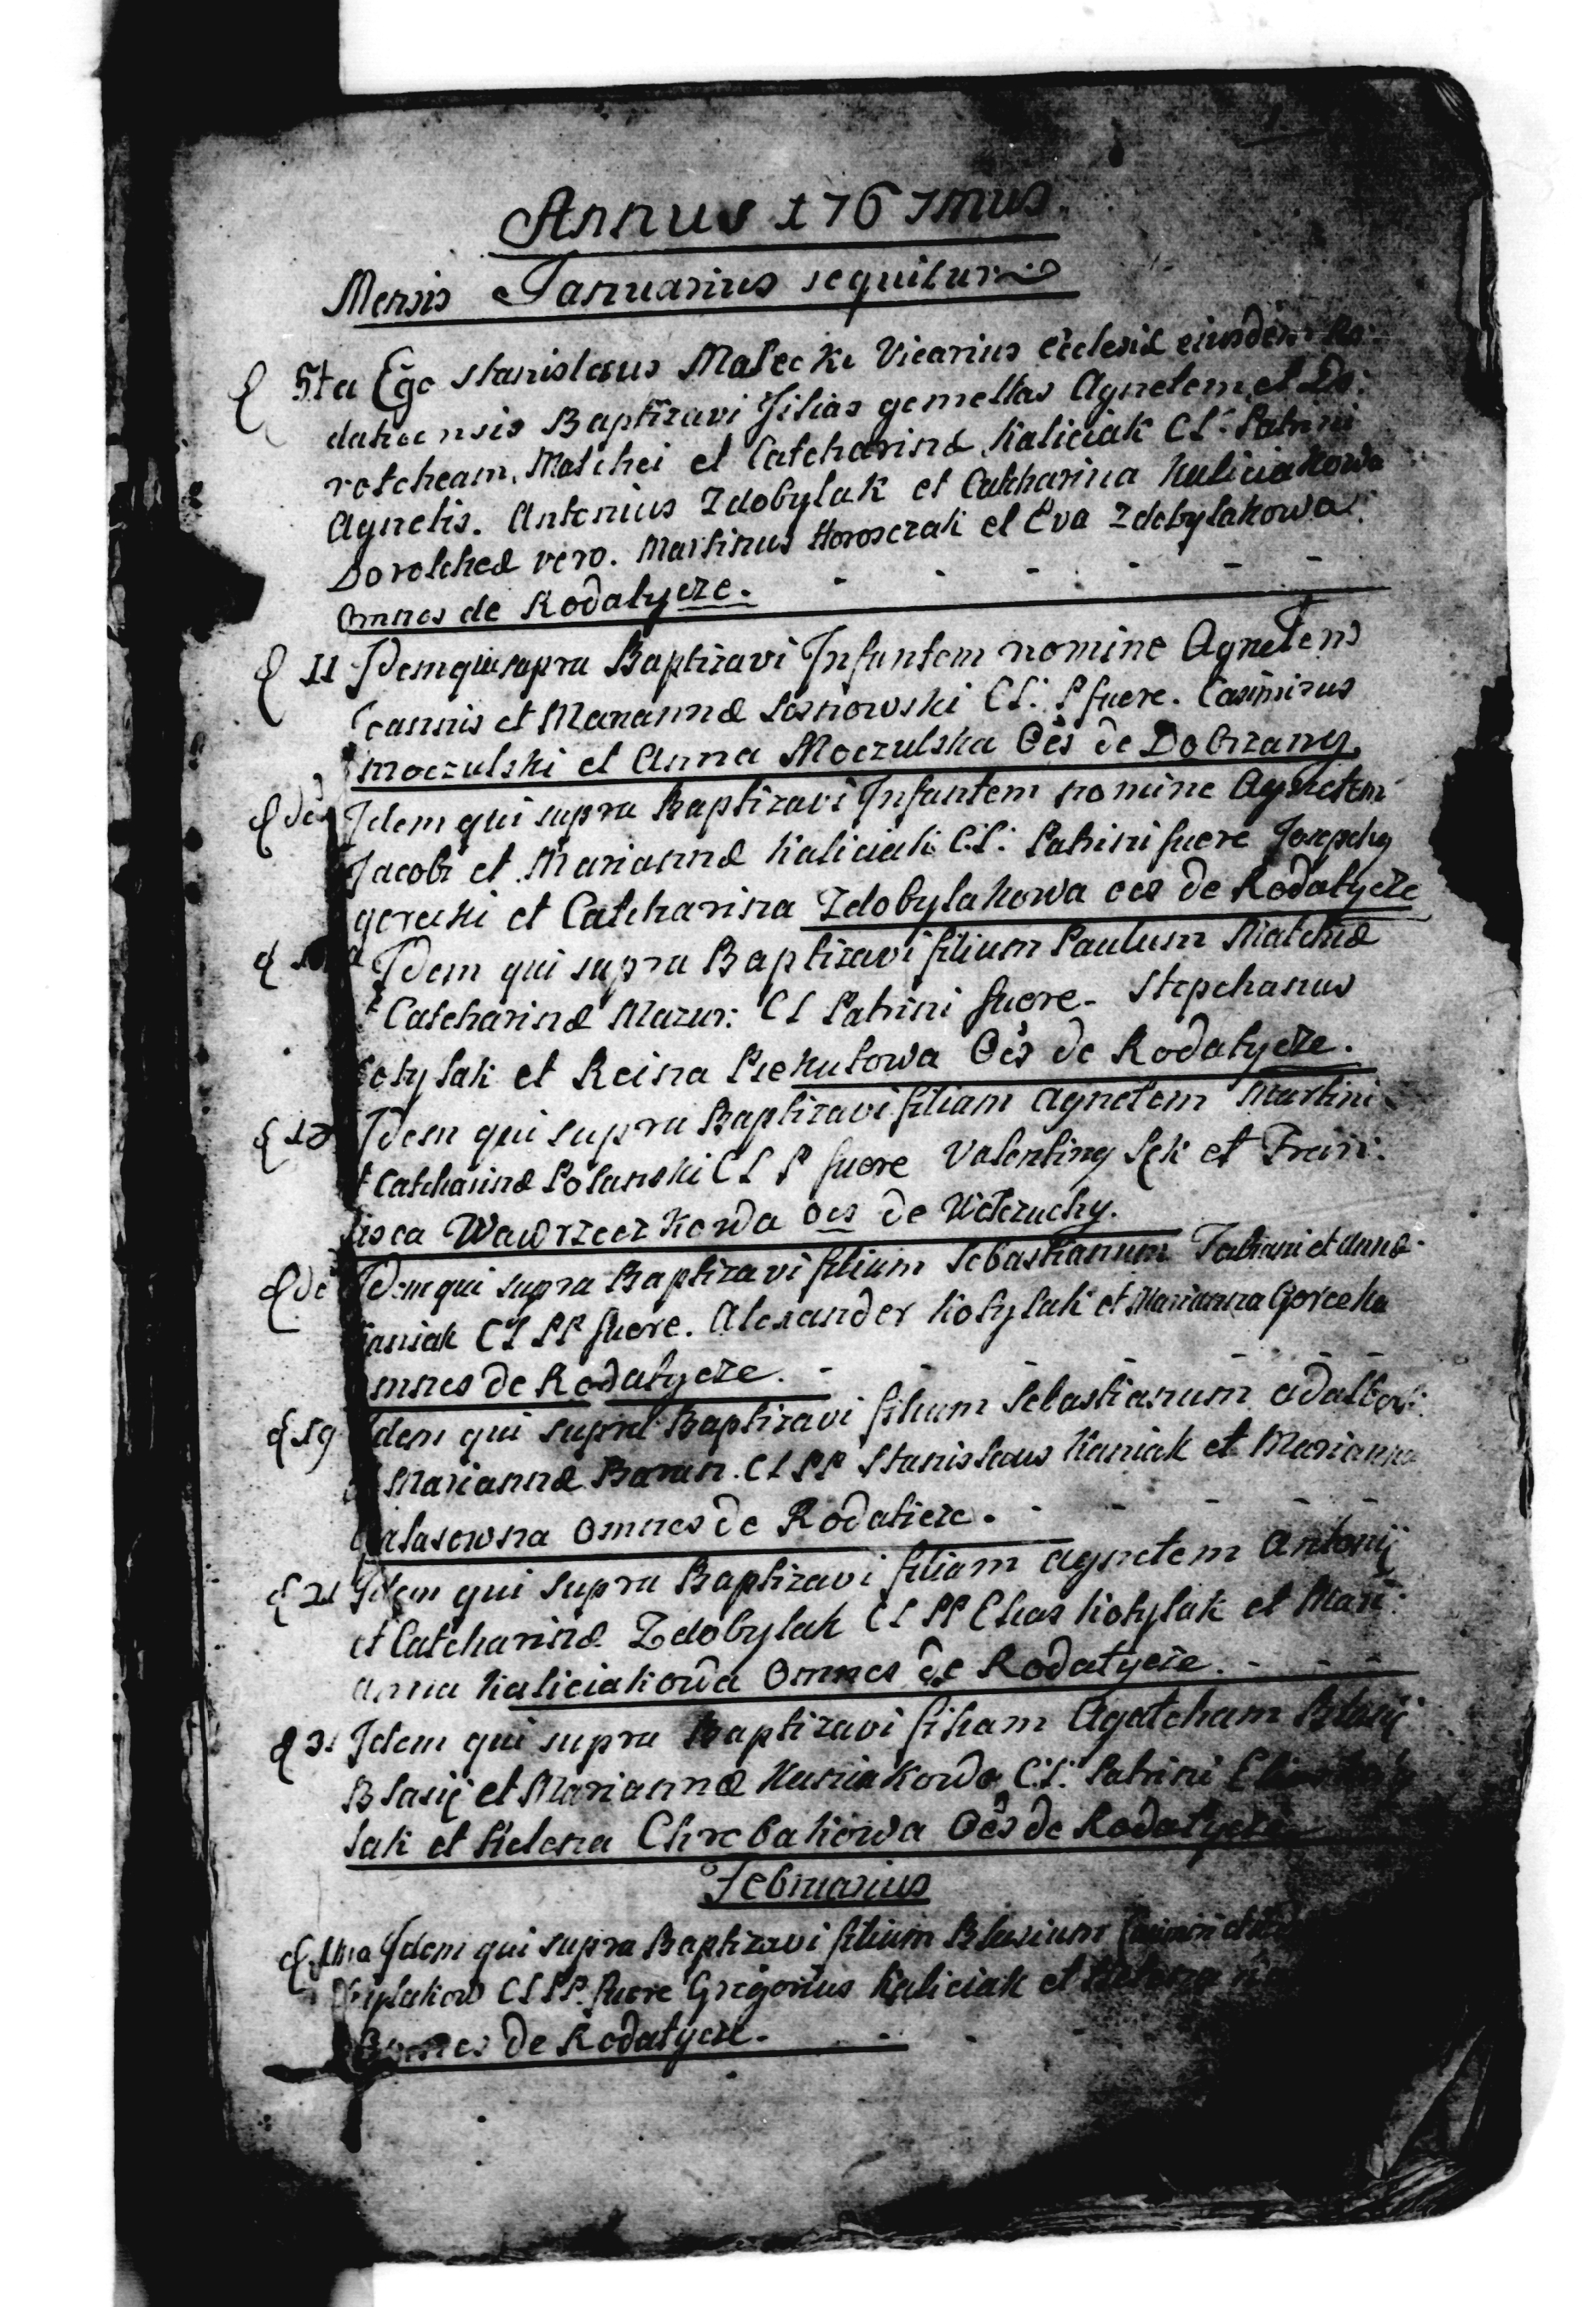 Annus 1767mus
Mensis Januarius sequitur
5ta Ego Stanislaus Malecki Vicarius Ecclesiæ eiusdem Ro:
daticensis Baptizavi Filias gemellas Agnetem et Do:
rotcheam, Matchei et Catcharinæ Kaliciak CL: Patrini
Agnetis. Antonius Zdobylak et Catcharina Kaliciakowa
Dorotcheæ vero. Martinus Horosczak et Eva Zdobylakowa
Omnes de Rodatycze.
11 Idem qui supra Baptizavi Infantem nomine Agnetem
Joannis et Mariannæ Sosnowski CL: P fuere. Casimirus
Moczulski et Anna Moczulska Oes de Dobrzany
de Idem qui supra Baptizavi Infantem nomine Agnetem
Jacobi et Mariannæ Kaliciak C:L: Patrini fuere Josephy
gorecki et Catcharina Zdobylakowa oes de Rodatycze
Idem qui supra Baptizavi filium Paulum Matchiæ
Catcharinæ Mazur: CL Patrini fuere. Stepchanus
otylak et Reina Piekutowa Oes de Rodatycze.
Idem qui supra Baptizavi filiam Agnetem Martini
t Catcharinæ Polanski CL P fuere Valentiny Sęk et Fran:
isca Wawrzeczkowa oes de
de Idem qui supra Baptizavi filium Sebastianum Fabiani et Annæ
aniak CL PP fuere. Alexander Kotylak et Marianna Gorecka
mnes de Rodatycze.
19 Idem qui supra Baptizavi filium Sebastianum Adalber:
Mariannæ Baran. CL PP Stanislaus Kaniak et Marianna
alasowna Omnes de Rodaticze.
21 Idem qui supra Baptizavi filiam Agnetem Antonij
et Catcharinæ Zdobylak CL PP Elias Kotylak et Mari:
anna Kaliciakowa Omnes de Rodatycze.
31 Idem qui supra Baptizavi filiam Agatcham Blasij
Blasij et Mariannæ Kuniakowa C:L: Patrini
lak et Helena Chrebakowa Oes de Rodatycze
Februarius
1ma Idem qui supra Baptizavi filium Blasium
CL PP. fuere Grigorius Kaliciak et
Omnes de Rodatycze.